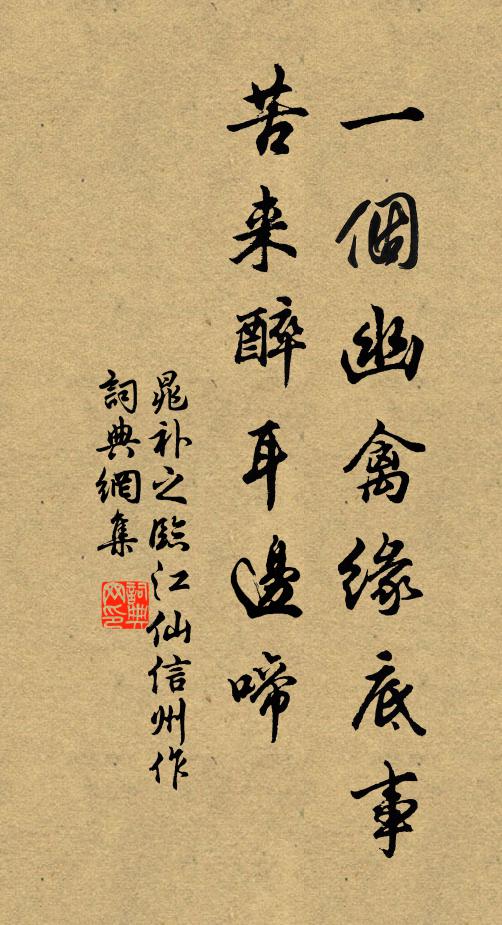 一個幽禽緣底事
苦来醉耳邊啼
晁补之臨江仙信州作
詞典網集
詞典网印